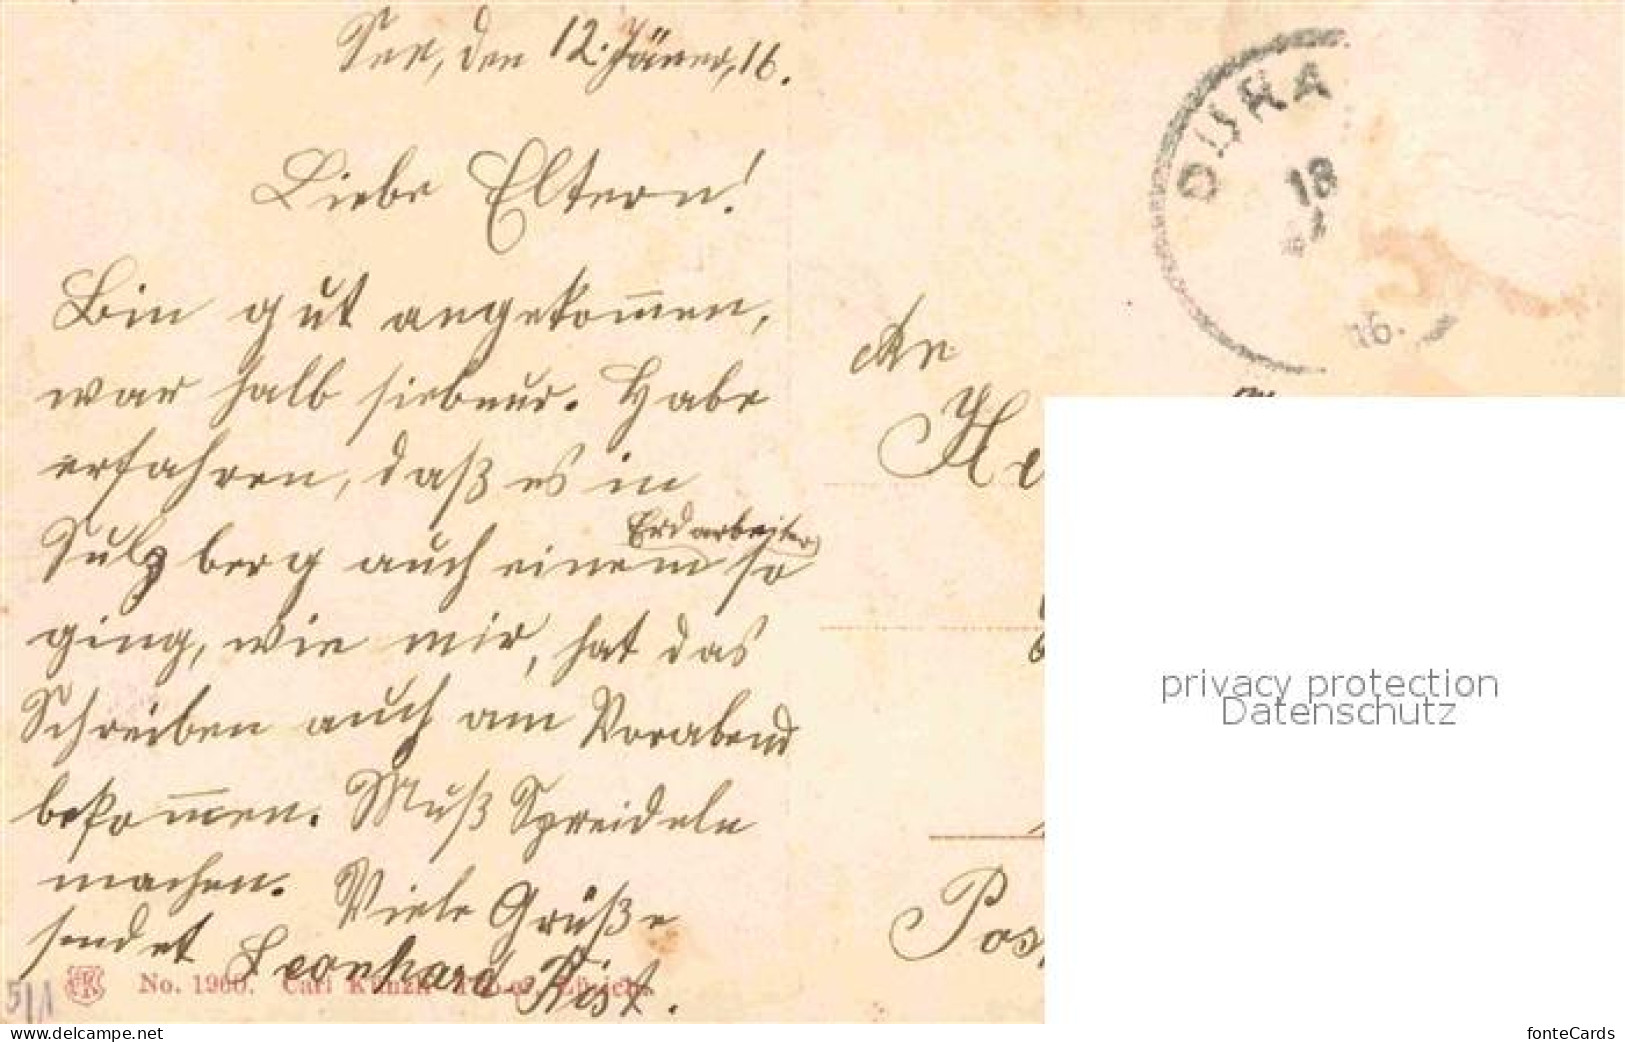 See, den 12. Jäner, 16.
Liebe Eltern!
Bin gut angekommen,
war halb sieben. Habe
erfahren, daß es in
Erdarbeiter
Sulzberg auch einem so
ging, wie mir, hat das
Schreiben auch am Vorabend
bekommen. Muß Spreideln
machen. Viele Grüße
sendet Leonhard Rist.
No. 1900. Carl Künzli
5/1
DURA
18
16.
An
He
Pos
privacy protection
Datenschutz
www.delcampe.net
fonteCards